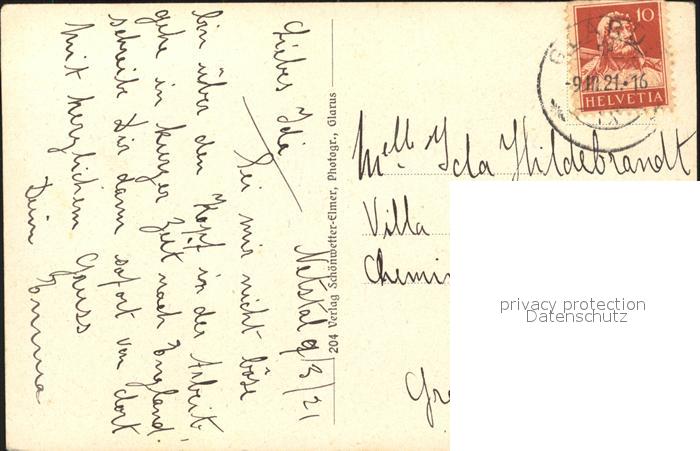 Netstal 9/3/21
Liebes Ida
Sei mir nicht böse
bin über den Kopf in der Arbeit,
gehe in kurzer Zeit nach England.
schreibe Dir dann sofort von dort
Mit herzlichem Gruss
Deine Emma
204 Verlag Schönwetter-Elmer, Photogr., Glarus
10
HELVETIA
-9.III.21.-16
Melle Ida Hildebrandt
Villa
Chemin
Gr
privacy protection
Datenschutz